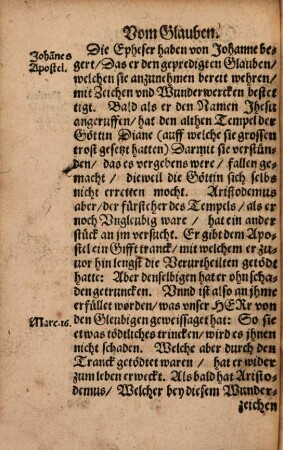 Vom Glauben.
Johānes
Apostel.
Die Epheser haben von Johanne be-
gert / Das er den gepredigten Glauben /
welchen sie anzunehmen bereit wehren /
mit Zeichen vnd Wunderwercken bestet
tigt. Bald als er den Namen Jhesu
angeruffen / hat den althen Tempel der
Göttin Diane (auff welche sie grossen
trost gesetzt hatten) Darmit sie verstün-
den / das es vergebens were / fallen ge-
macht / dieweil die Göttin sich selbs
nicht erretten mocht. Aristodemus
aber / der fürsteher des Tempels / als er
noch Vngleubig ware / hat ein ander
stück an jm versucht. Er gibt dem Apo-
stel ein Gifft tranck / mit welchem er zu-
uor hin lengst die Verurtheilten getödt
hatte: Aber denselbigen hat er ohn scha-
den getruncken. Vnnd ist also an jhme
erfüllet worden / was vnser HERr von
Marc. 16.
den Gleubigen geweissaget hat: So sie
etwas tödtliches trincken / wird es jhnen
nicht schaden. Welche aber durch den
Tranck getödtet waren / hat er wider
zum leben erweckt. Als bald hat Aristo-
demus / Welcher bey diesem Wunder-
zeichen